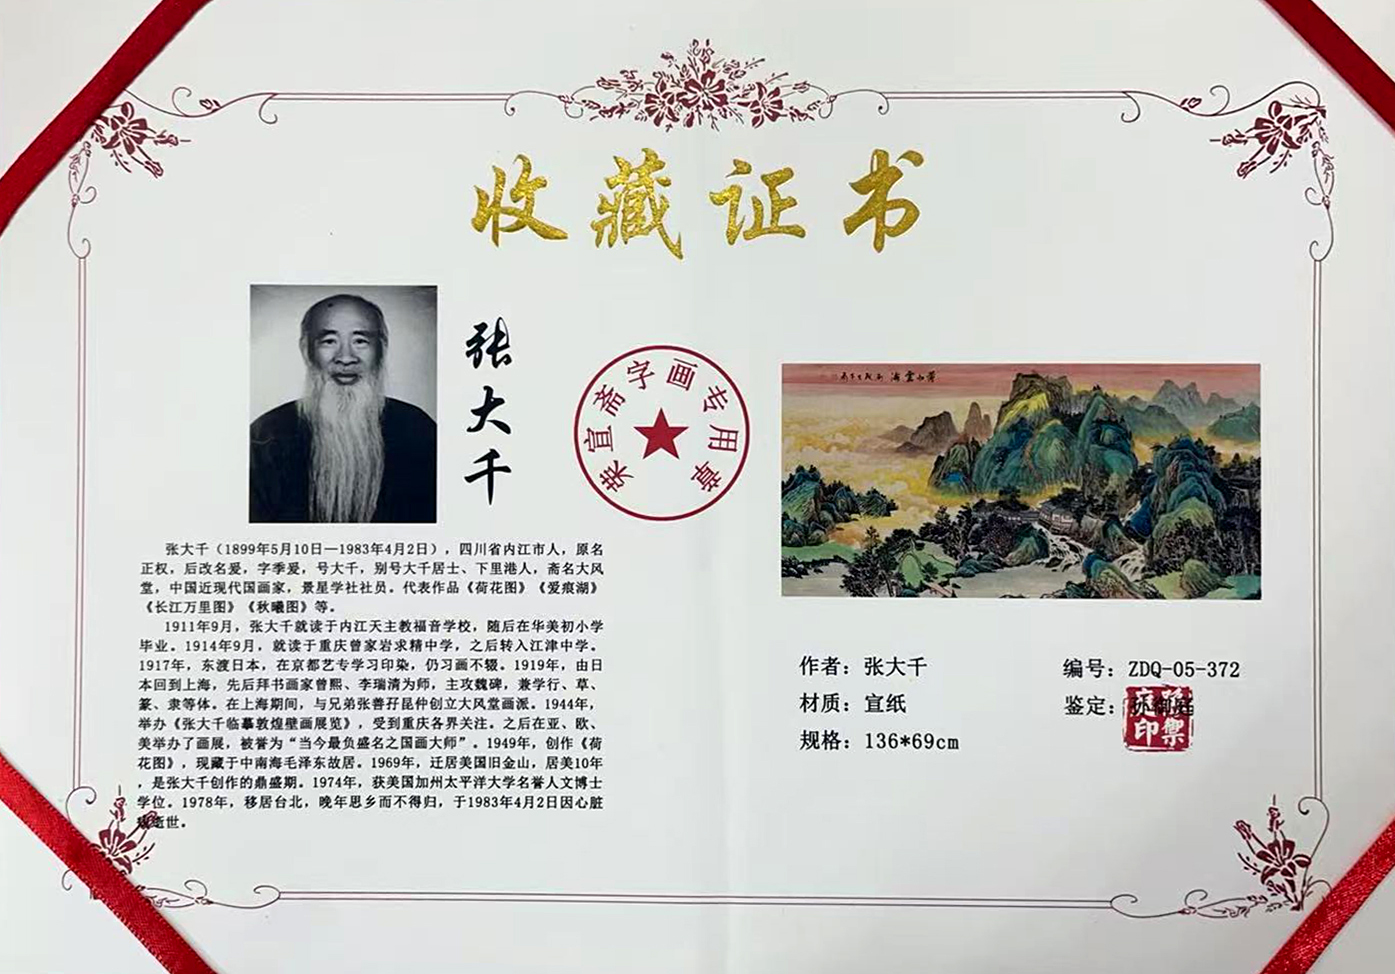 收藏证书
张大千
荣宣斋字画专用章
张大千（1899年5月10日—1983年4月2日），四川省内江市人，原名
正权，后改名爰，字季爰，号大千，别号大千居士、下里港人，斋名大风
堂，中国近现代国画家，景星学社社员。代表作品《荷花图》《爱痕湖》
《长江万里图》《秋曦图》等。
1911年9月，张大千就读于内江天主教福音学校，随后在华美初小学
毕业。1914年9月，就读于重庆曾家岩求精中学，之后转入江津中学。
1917年，东渡日本，在京都艺专学习印染，仍习画不辍。1919年，由日
本回到上海，先后拜书画家曾熙、李瑞清为师，主攻魏碑，兼学行、草、
篆、隶等体。在上海期间，与兄弟张善孖昆仲创立大风堂画派。1944年，
举办《张大千临摹敦煌壁画展览》，受到重庆各界关注。之后在亚、欧、
美举办了画展，被誉为“当今最负盛名之国画大师”。1949年，创作《荷
花图》，现藏于中南海毛泽东故居。1969年，迁居美国旧金山，居美10年
，是张大千创作的鼎盛期。1974年，获美国加州太平洋大学名誉人文博士
学位。1978年，移居台北，晚年思乡而不得归，于1983年4月2日因心脏
逝世。
作者：张大千
材质：宣纸
规格：136*69cm
编号：ZDQ-05-372
鉴定：